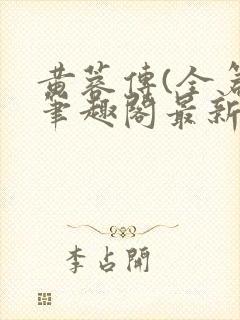 黄蓉传(全篇
笔趣阁最新
李占開